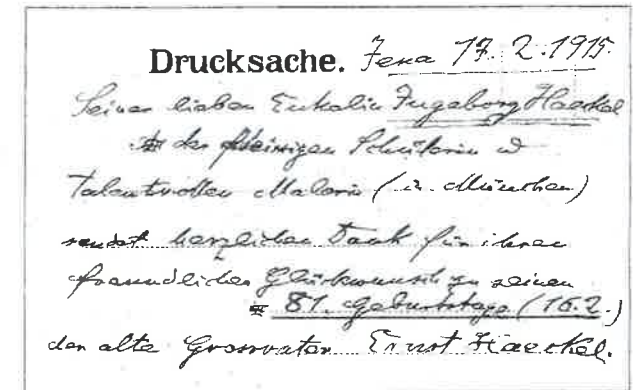 Drucksache. Jena 17.2.1915.
Seiner lieben Enkelin Ingeborg Haeckel
der fleissigen Schülerin u
talentvollen Malerin (in München)
sendet herzlichen Dank für ihren
freundlichen Glückwunsch zu seinem
81. Geburtstage (16.2.)
der alte Grossvater Ernst Haeckel.